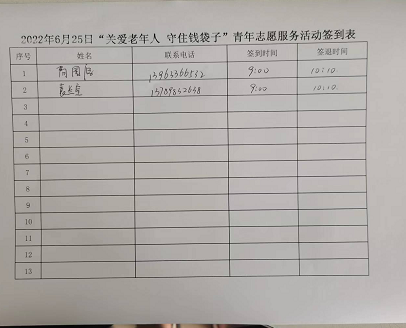 2022年6月25日“关爱老年人 守住钱袋子”青年志愿服务活动签到表
序号 姓名 联系电话 签到时间 签退时间
1 9:00 10:10
2 9:00 10:10
3
4
5
6
7
8
9
10
11
12
13